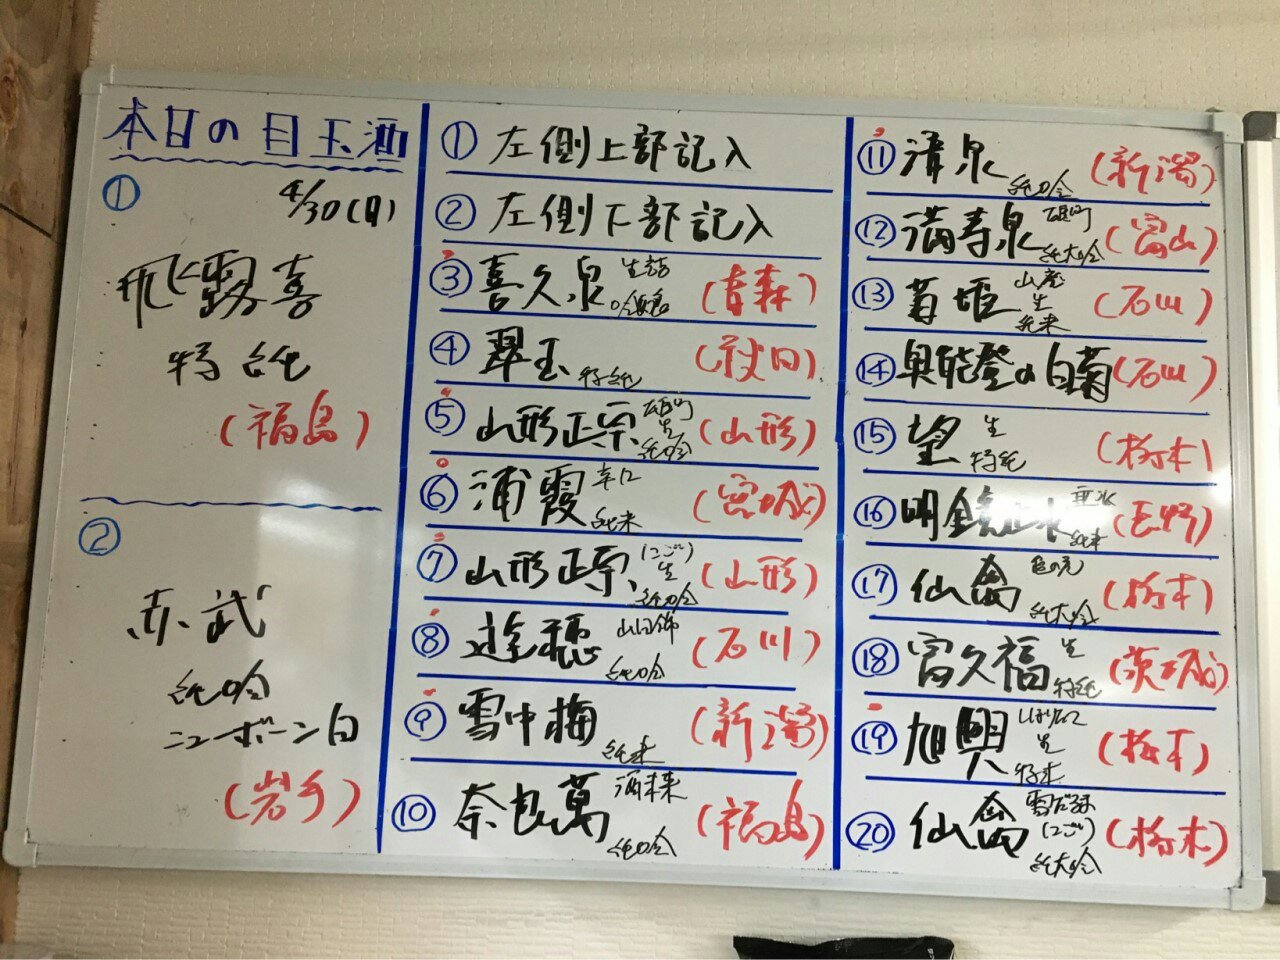 本日の目玉酒
① 4/30(日)
飛露喜
特純
(福島)
②
赤武
純吟
ニューボーン白
(岩手)
① 左側上部記入
② 左側下部記入
③ 喜久泉 生詰 吟醸 (青森)
④ 翠玉 特純 (秋田)
⑤ 山形正宗 雄町 生 純吟 (山形)
⑥ 浦霞 辛口 純米 (宮城)
⑦ 山形正宗 (にごり) 生 純吟 (山形)
⑧ 遊穂 山田錦 純吟 (石川)
⑨ 雪中梅 純米 (新潟)
⑩ 奈良萬 酒未来 純吟 (福島)
⑪ 清泉 純吟 (新潟)
⑫ 満寿泉 雄町 純大吟 (富山)
⑬ 菊姫 山廃 生 純米 (石川)
⑭ 奥能登の白菊 (石川)
⑮ 望 生 特純 (栃木)
⑯ 明鏡止水 垂氷 純米 (長野)
⑰ 仙禽 亀の尾 純大吟 (栃木)
⑱ 富久福 生 特純 (茨城)
⑲ 旭興 生 特本 (栃木)
⑳ 仙禽 雪だるま (にごり) 純大吟 (栃木)